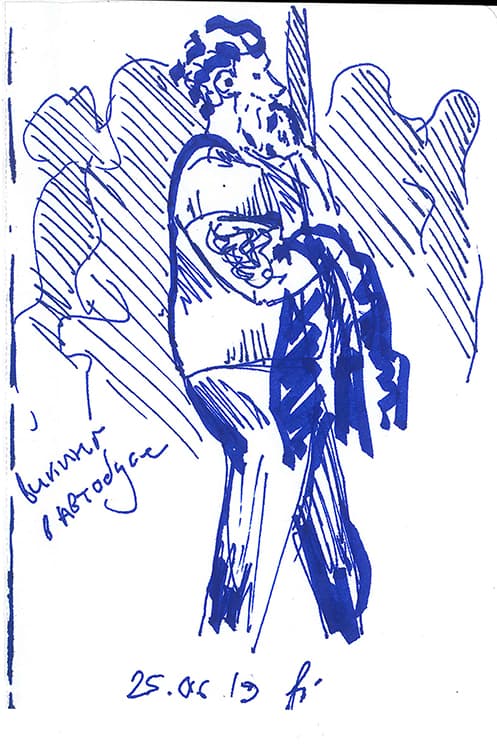 викинг
в автобусе
25.06 19